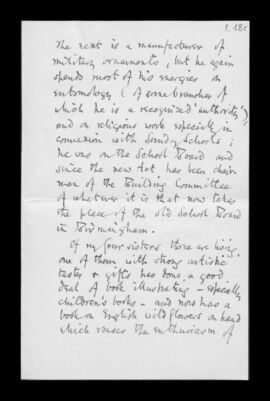 p. 18c
The next is a manufacturer of
military ornaments, but he again
spends most of his energies on
entomology (of some branches of
which he is a recognized 'authority')
and on religious work especially in
connexion with Sunday Schools;
he was on the School Board and
since the new Act has been chair
man of the Building Committee
of whatever it is that now takes
the place of the old School Board
in Birmingham.
Of my four sisters three are living,
one of them with strong artistic
tastes & gifts has done a good
deal of book illustrating – especially
children's books – and now has a
book on English wild flowers on hand
which raises the enthusiasm of